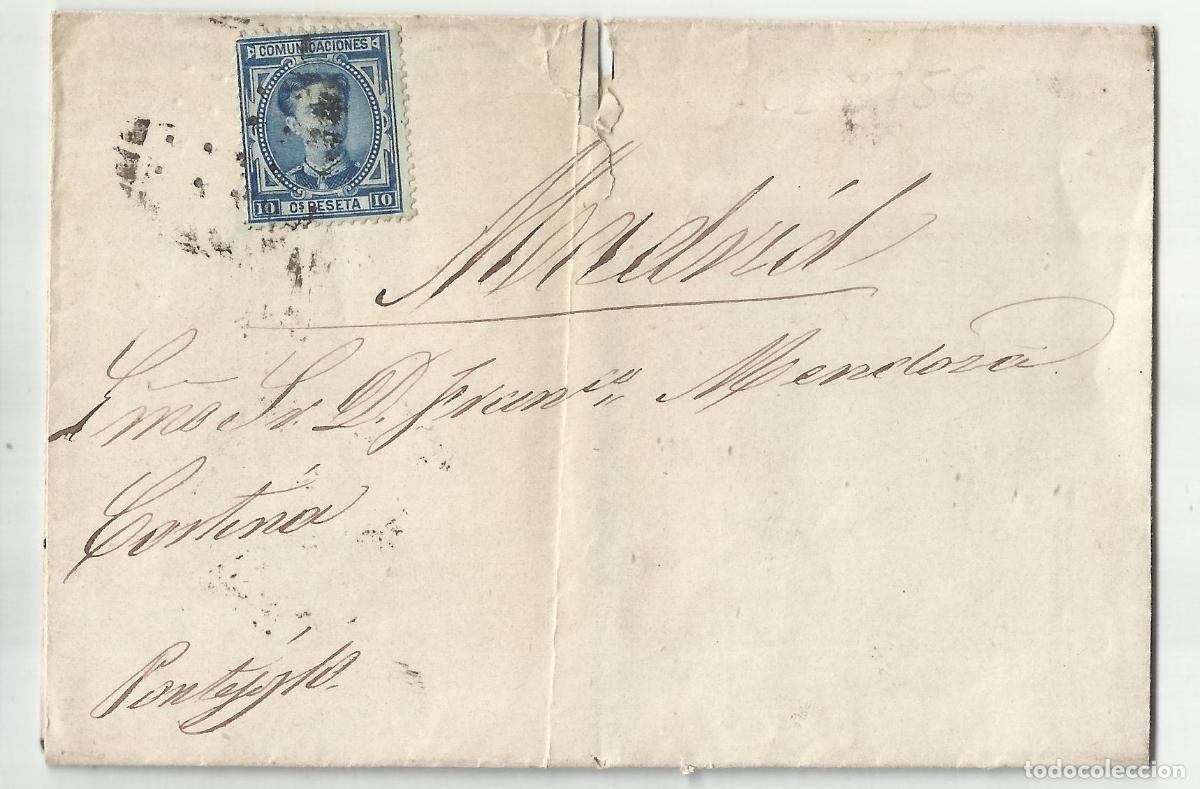 COMUNICACIONES
10 Cs PESETA 10
Madrid
Emo Sr. D. Franco Mendoza
Cortina
todocoleccion